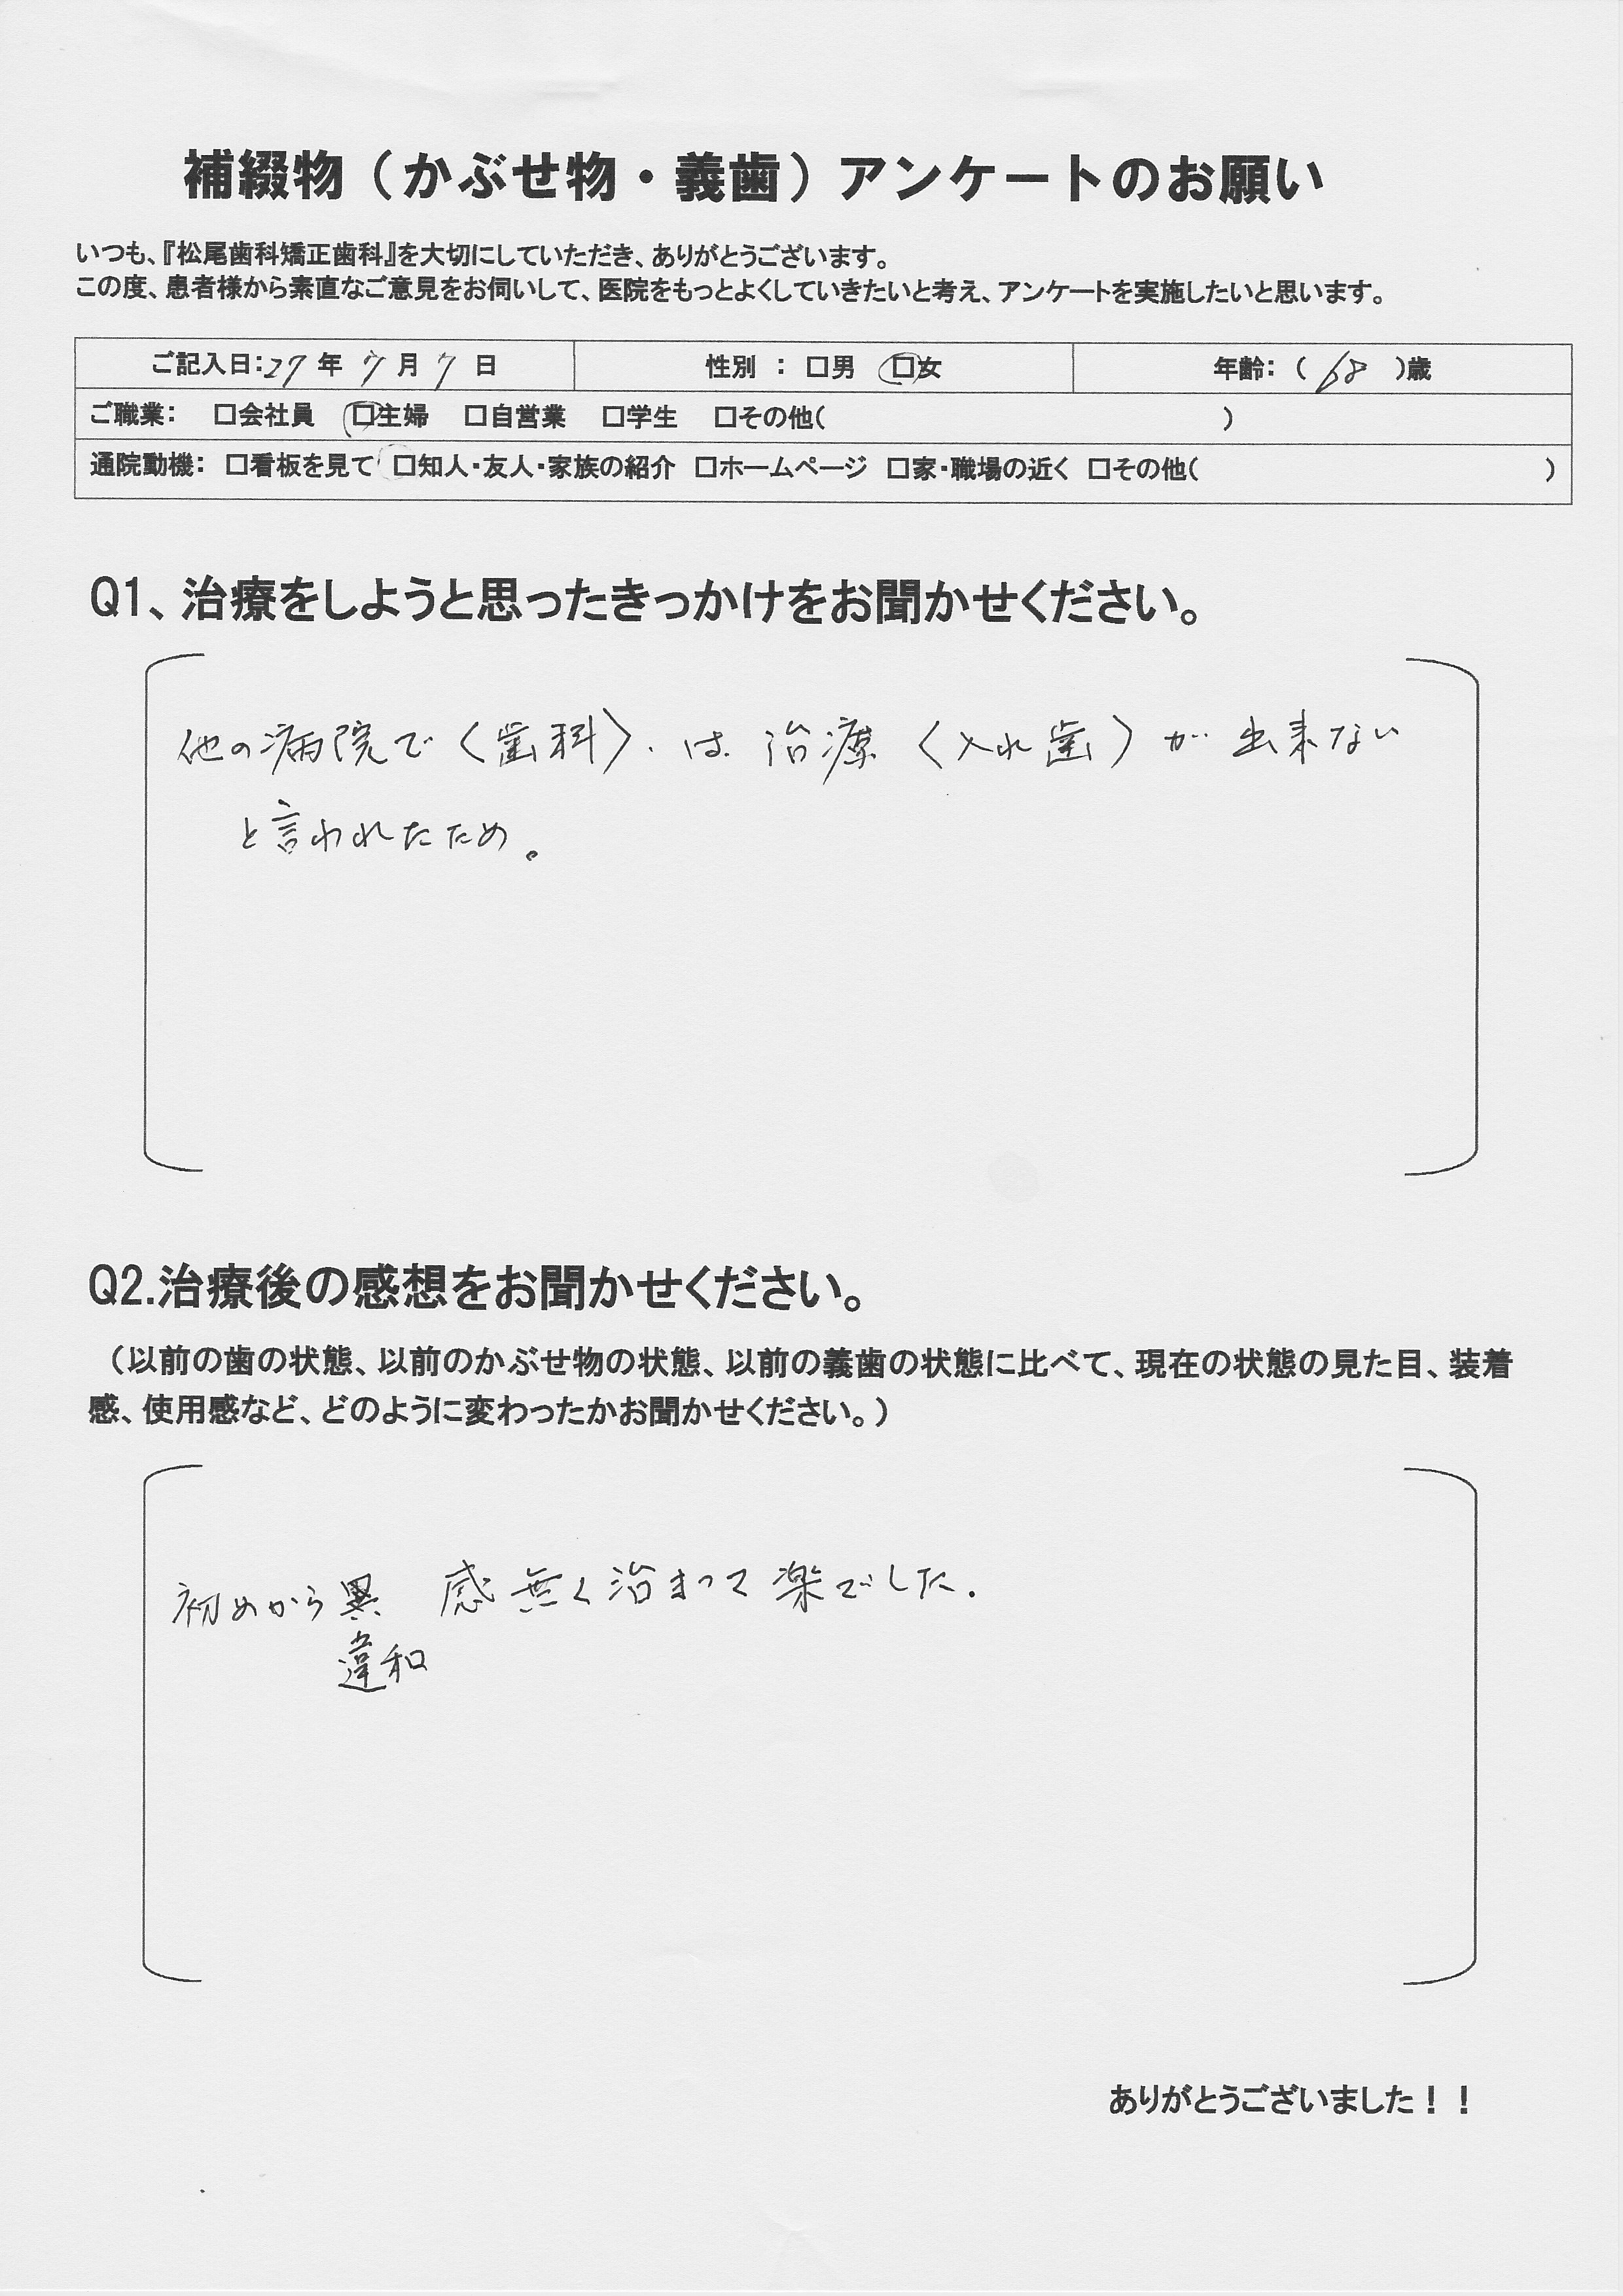 補綴物（かぶせ物・義歯）アンケートのお願い
いつも、『松尾歯科矯正歯科』を大切にしていただき、ありがとうございます。
この度、患者様から素直なご意見をお伺いして、医院をもっとよくしていきたいと考え、アンケートを実施したいと思います。
ご記入日：27年 7月 7日 性別 ： □男 □女 年齢：（ 68 ）歳
ご職業： □会社員 □主婦 □自営業 □学生 □その他（ ）
通院動機： □看板を見て □知人・友人・家族の紹介 □ホームページ □家・職場の近く □その他（ ）
Q1、治療をしようと思ったきっかけをお聞かせください。
他の病院で〈歯科〉.は 治療〈入れ歯〉が出来ない
と言われたため。
Q2.治療後の感想をお聞かせください。
（以前の歯の状態、以前のかぶせ物の状態、以前の義歯の状態に比べて、現在の状態の見た目、装着
感、使用感など、どのように変わったかお聞かせください。）
初めから異 感無く治まって楽でした.
違和
ありがとうございました！！